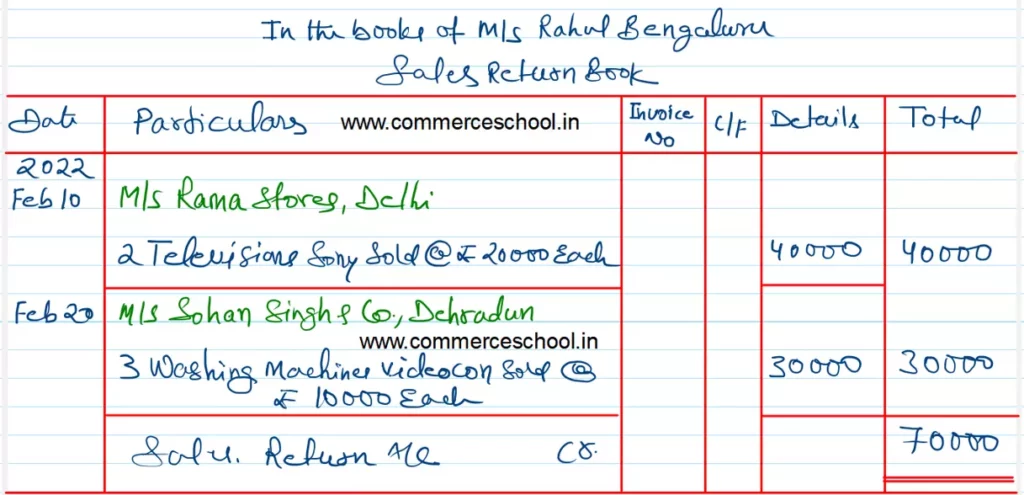 In the books of M/s Rahul Bengaluru
Sales Return Book
Date Particulars www.commerceschool.in Invoice No C/F Details Total
2022
Feb 10 M/s Rama Stores, Delhi
2 Televisions Sony Sold @ ₹ 20000 Each 40000 40000
Feb 20 M/s Sohan Singh & Co., Dehradun
www.commerceschool.in
3 Washing Machines Videocon Sold @ 30000 30000
₹ 10000 Each
Sales Return A/c Cr. 70000